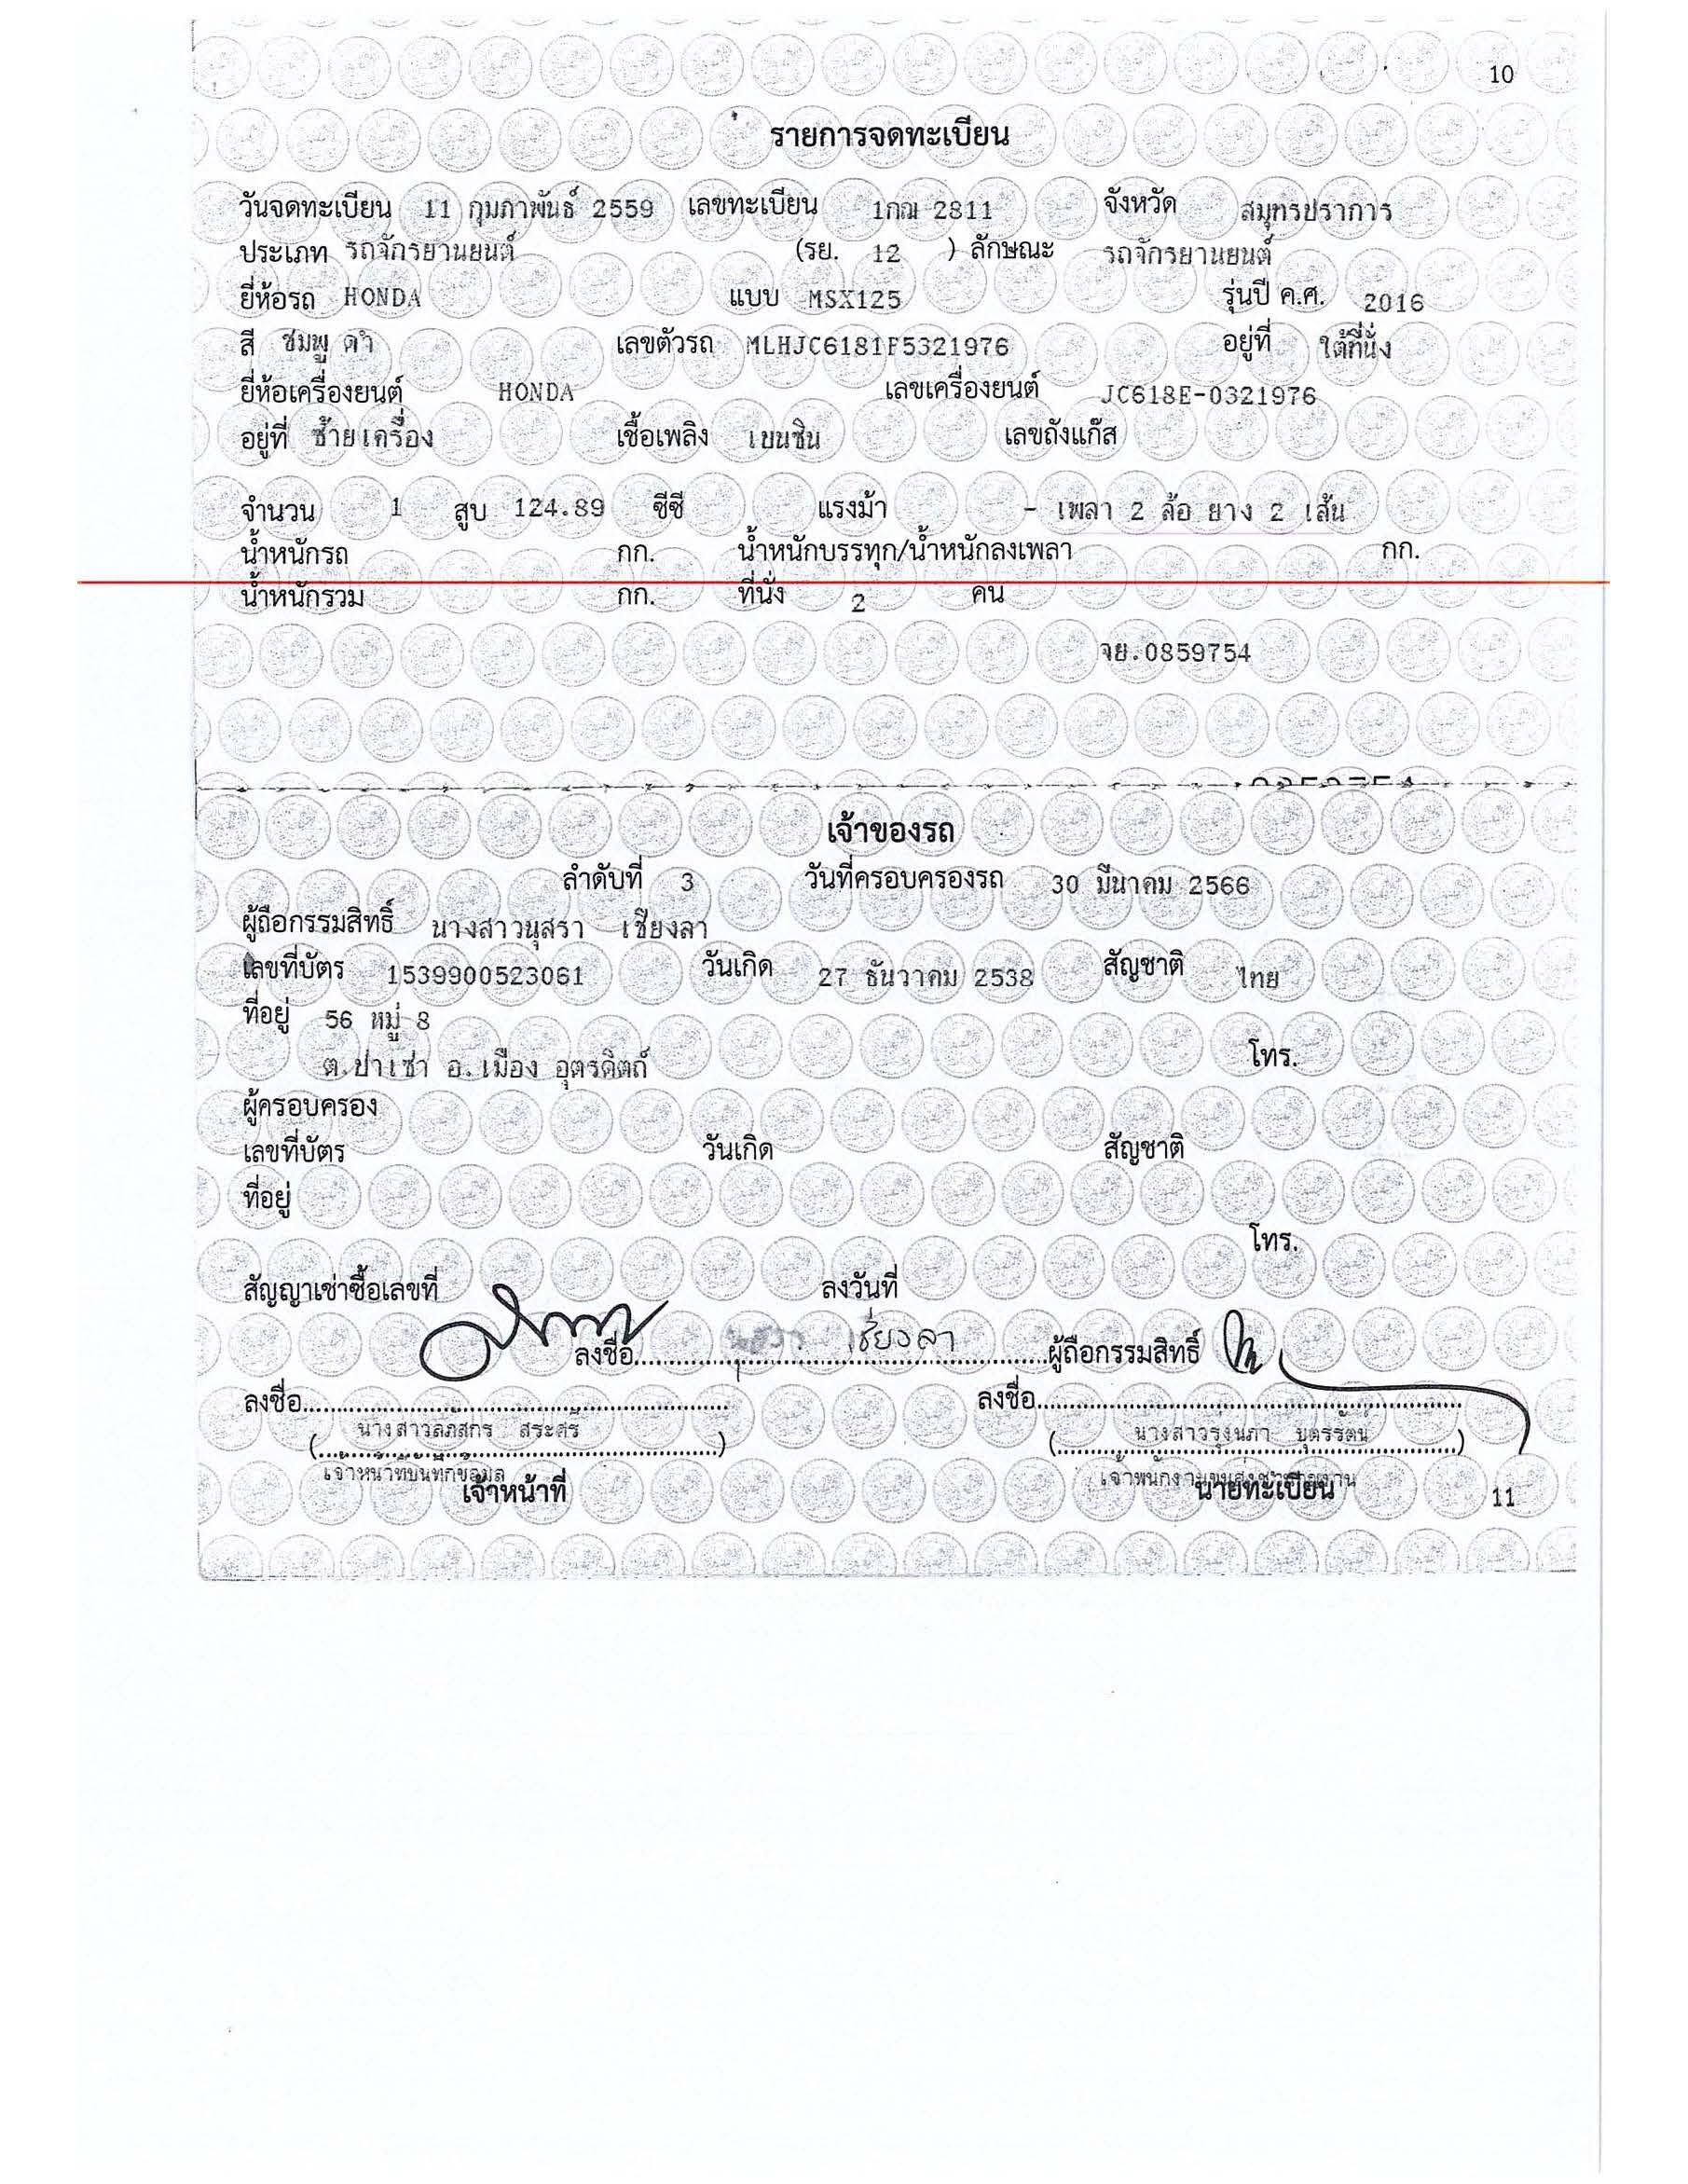 10
รายการจดทะเบียน
วันจดทะเบียน 11 กุมภาพันธ์ 2559 เลขทะเบียน 1กณ 2811 จังหวัด สมุทรปราการ
ประเภท รถจักรยานยนต์ (รย. 12 ) ลักษณะ รถจักรยานยนต์
ยี่ห้อรถ HONDA แบบ MSX125 รุ่นปี ค.ศ. 2016
สี ชมพู ดำ เลขตัวรถ MLHJC6181F5321976 อยู่ที่ ใต้ที่นั่ง
ยี่ห้อเครื่องยนต์ HONDA เลขเครื่องยนต์ JC618E-0321976
อยู่ที่ ซ้ายเครื่อง เชื้อเพลิง เบนซิน เลขถังแก๊ส
จำนวน 1 สูบ 124.89 ซีซี แรงม้า - เพลา 2 ล้อ ยาง 2 เส้น
น้ำหนักรถ กก. น้ำหนักบรรทุก/น้ำหนักลงเพลา กก.
น้ำหนักรวม กก. ที่นั่ง 2 คน
จย.0859754
เจ้าของรถ
ลำดับที่ 3 วันที่ครอบครองรถ 30 มีนาคม 2566
ผู้ถือกรรมสิทธิ์ นางสาวนุสรา เชียงลา
เลขที่บัตร 1539900523061 วันเกิด 27 ธันวาคม 2538 สัญชาติ ไทย
ที่อยู่ 56 หมู่ 8
ต.ป่าเซ่า อ.เมือง อุตรดิตถ์ โทร.
ผู้ครอบครอง
เลขที่บัตร วันเกิด สัญชาติ
ที่อยู่
โทร.
สัญญาเช่าซื้อเลขที่ ลงวันที่
ลงชื่อ นุสรา เชียงลา ผู้ถือกรรมสิทธิ์
ลงชื่อ ลงชื่อ
(นางสาวลภัสกร สระศรี) (นางสาวรุ่งนภา บุตรรัตน์)
เจ้าหน้าที่บันทึกข้อมูล
เจ้าหน้าที่ นายทะเบียน 11